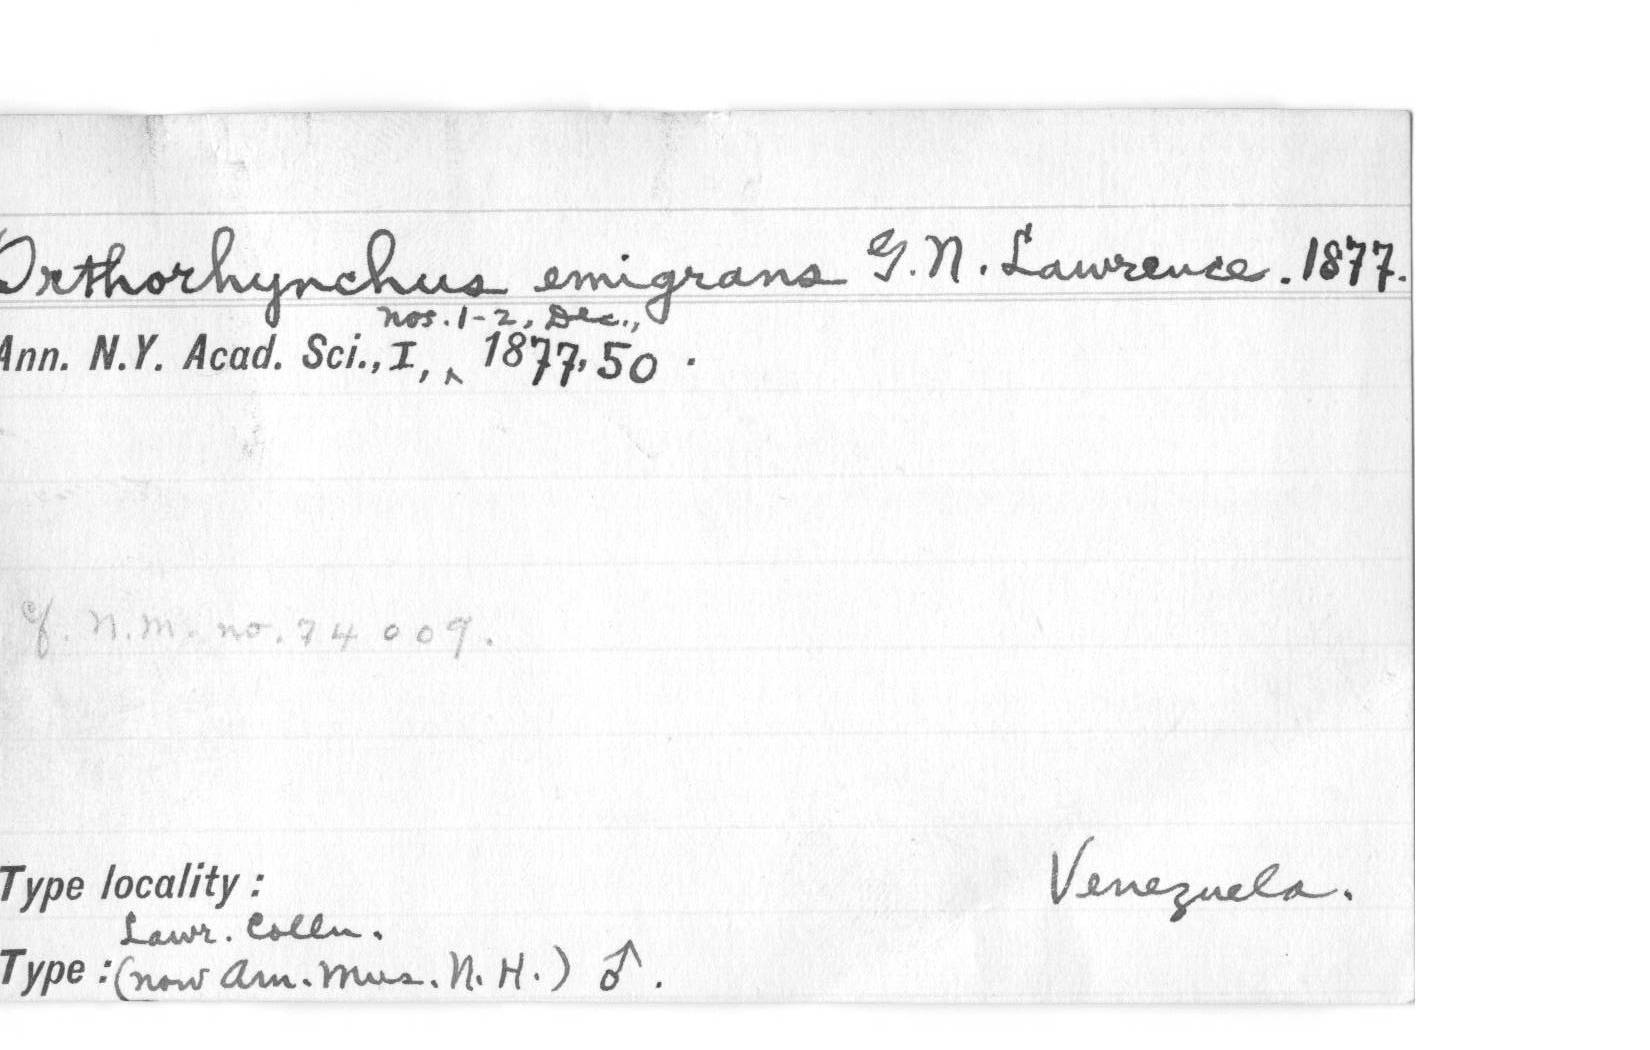 Orthorhynchus emigrans G. N. Lawrence. 1877.
nos. 1-2, Dec.,
Ann. N.Y. Acad. Sci., I, ^ 1877, 50 .
cf. N.M. no. 74009.
Type locality : Venezuela.
Lawr. Colln.
Type : (now Am. Mus. N. H.) ♂ .